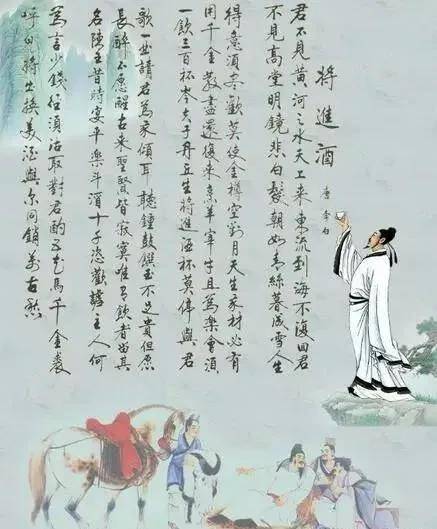 將進酒
唐 李白
君不見黃河之水天上来東流到海不復回君
不見高堂明鏡悲白髮朝如青絲暮成雪人生
得意須盡歡莫使金樽空對月天生我材必有
用千金散盡還復來烹羊宰牛且為樂會須
一飲三百杯岑夫子丹丘生將進酒杯莫停與君
歌一曲請君為我傾耳聽鍾鼓饌玉不足貴但愿
長醉不愿醒古来聖賢皆寂寞唯有飲者留其
名陳王昔時宴平樂斗酒十千恣歡謔主人何
為言少錢徑須沽取對君酌五花馬千金裘
呼兒將出換美酒與尔同銷萬古愁